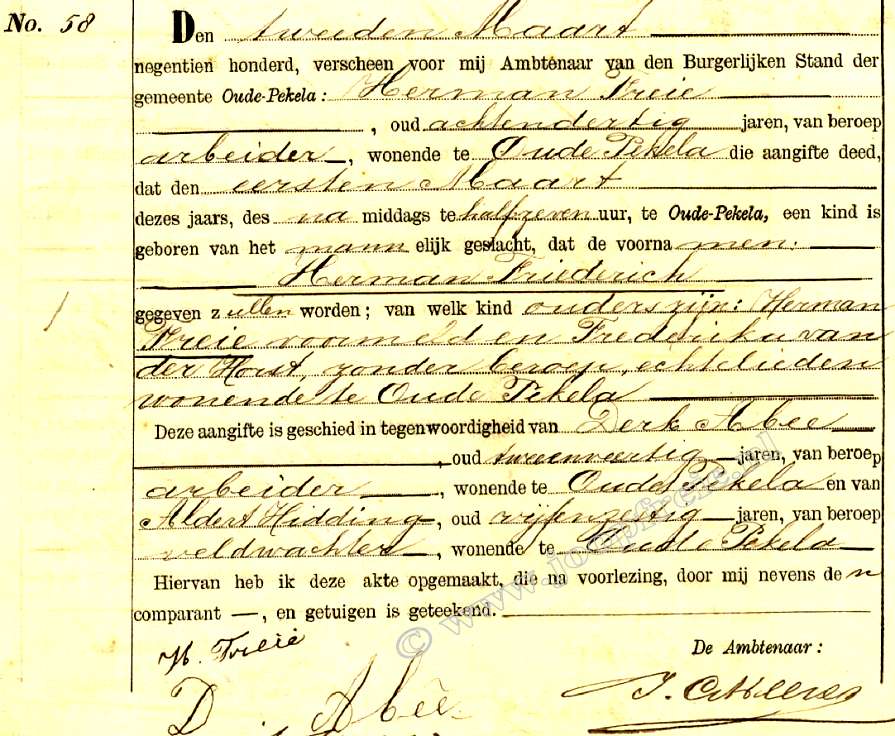 No. 58
Den tweeden Maart
negentien honderd, verscheen voor mij Ambtenaar van den Burgerlijken Stand der
gemeente Oude-Pekela: Herman Freie
, oud achtendertig jaren, van beroep
arbeider, wonende te Oude Pekela die aangifte deed,
dat den eersten Maart
dezes jaars, des na middags te half zeven uur, te Oude-Pekela, een kind is
geboren van het mannelijk geslacht, dat de voornamen:
Herman Friederich
gegeven zullen worden; van welk kind ouders zijn: Herman
Freie voormeld en Frederika van
der Horst, zonder beroep, echtelieden
wonende te Oude Pekela
Deze aangifte is geschied in tegenwoordigheid van Derk Abee
, oud tweeenveertig jaren, van beroep
arbeider, wonende te Oude Pekela en van
Aldert Hidding, oud vijfenzestig jaren, van beroep
veldwachter, wonende te Oude Pekela
Hiervan heb ik deze akte opgemaakt, die na voorlezing, door mij nevens den
comparant —, en getuigen is geteekend.
H. Freie
De Ambtenaar:
D Abee
© www.joopfreie.nl